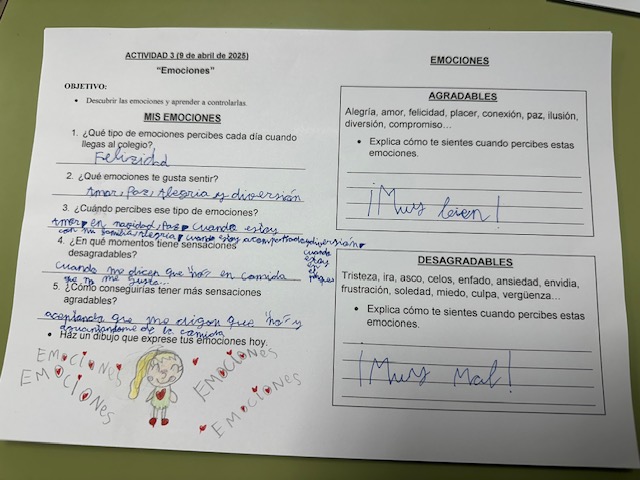 ACTIVIDAD 3 (9 de abril de 2025)
"Emociones"
OBJETIVO:
• Descubrir las emociones y aprender a controlarlas.
MIS EMOCIONES
1. ¿Qué tipo de emociones percibes cada día cuando
llegas al colegio?
Felizidad
2. ¿Qué emociones te gusta sentir?
Amor, Paz, Alegria y diversión
3. ¿Cuándo percibes ese tipo de emociones?
Amor, en navidad, Paz, cuando estoy
con mi familia, Alegria, cuando estoy acompañada y diversión,
cuando
estoy
en
el
parque
4. ¿En qué momentos tiene sensaciones
desagradables?
cuando me dicen que "no" en comida
que no me gusta...
5. ¿Cómo conseguirías tener más sensaciones
agradables?
aceptando que me digan que "no" y
de la comida
• Haz un dibujo que exprese tus emociones hoy.
EMOCIONES
EMOCIONES
EMOCIONES
EMOCIONES
EMOCIONES
AGRADABLES
Alegría, amor, felicidad, placer, conexión, paz, ilusión,
diversión, compromiso…
• Explica cómo te sientes cuando percibes estas
emociones.
¡Muy bien!
DESAGRADABLES
Tristeza, ira, asco, celos, enfado, ansiedad, envidia,
frustración, soledad, miedo, culpa, vergüenza…
• Explica cómo te sientes cuando percibes estas
emociones.
¡Muy mal!